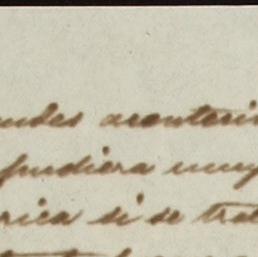 andes acontecim
pudiera muy
rica si se trat